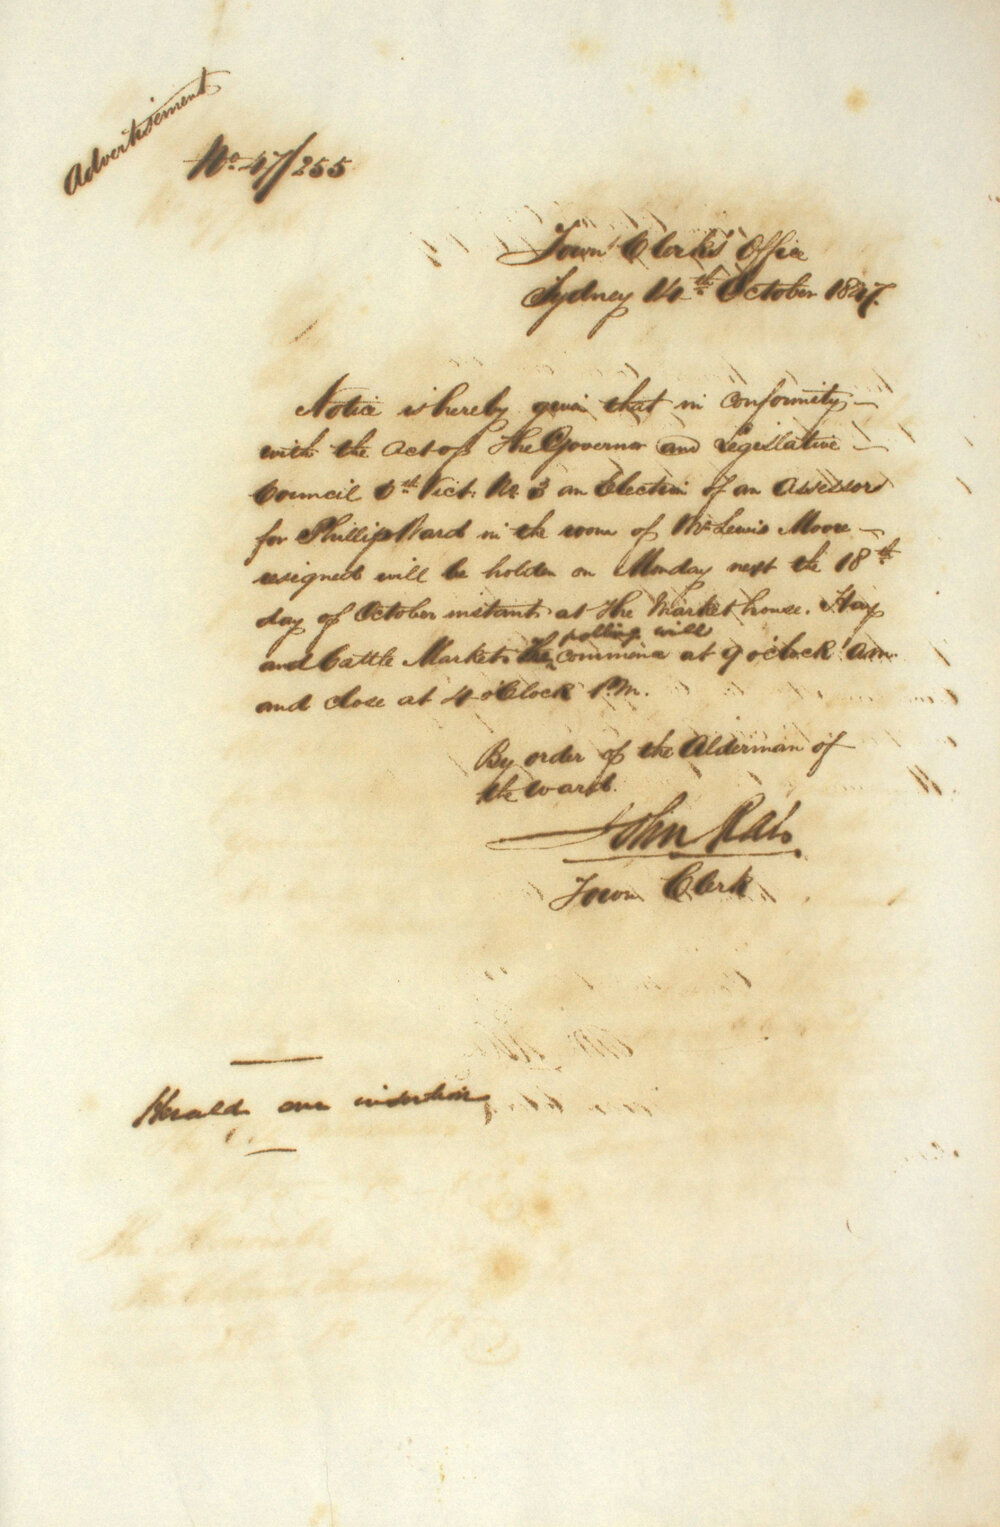 Advertisement
No. 47/255
Town Clerk's Office
Sydney 14th October 1847.
Notice is hereby given that in conformity
with the act of The Governor and Legislative
Council 6th Vict. No. 3 an Election of an Assessor
for Phillip Ward in the room of Mr Lewis Moore
resigned will be holden on Monday next the 18th
day of October instant at the Market house. Hay
and Cattle Markets The polling will commence at 9 o'clock a.m.
and close at 4 o'Clock P.M.
By order of the Alderman of
the ward.
John Rae.
Town Clerk
Herald one insertion